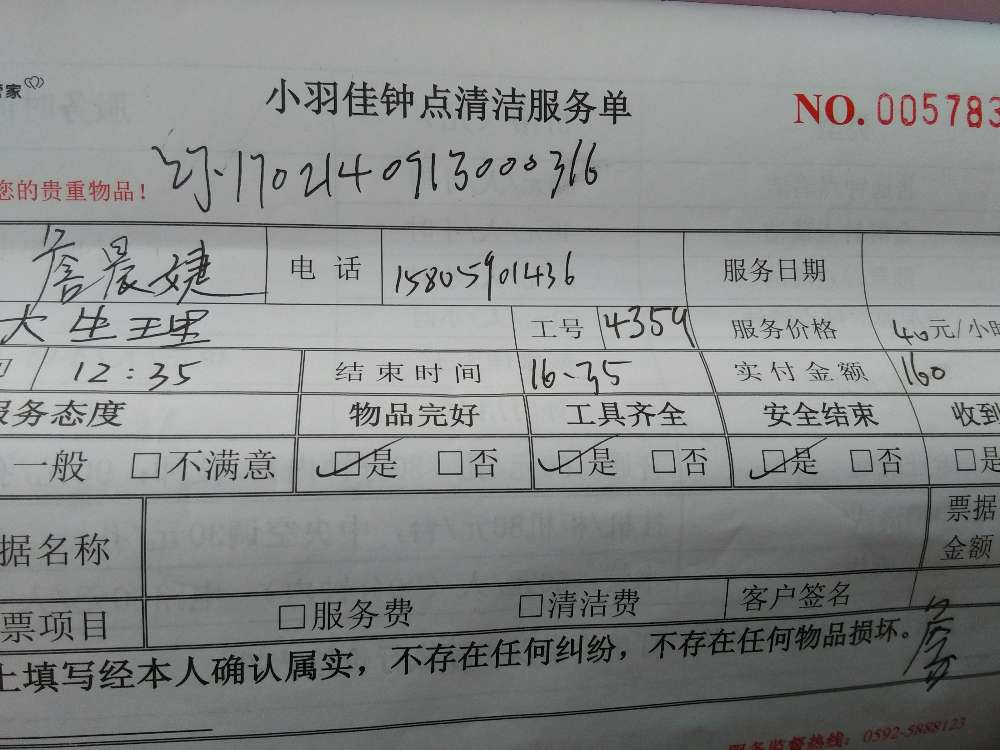 管家
小羽佳钟点清洁服务单 NO. 005783
订.1702140913000366
您的贵重物品！
詹晨婕 电话 15805901436 服务日期
大生王里 工号 4359 服务价格 40元/小时
12:35 结束时间 16.35 实付金额 160
服务态度 物品完好 工具齐全 安全结束 收到
一般 □不满意 □是 □否 □是 □否 □是 □否 □是
据名称 票据
金额
票项目 □服务费 □清洁费 客户签名
上填写经本人确认属实，不存在任何纠纷，不存在任何物品损坏。 詹
服务监督热线：0592-5888123